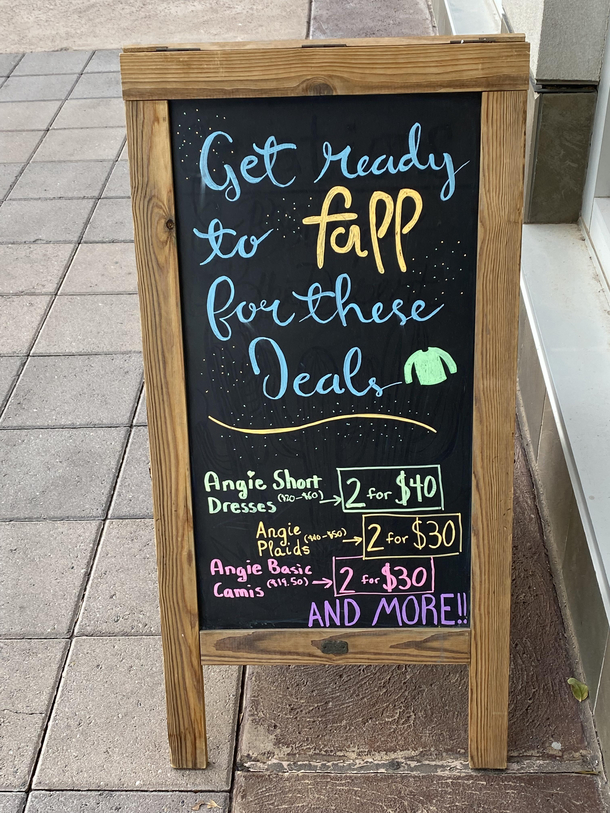 Get ready
to fall
for these
Deals
Angie Short
Dresses ($20-$60) → 2 for $40
Angie
Plaids ($40-$50) → 2 for $30
Angie Basic
Camis ($19.50) → 2 for $30
AND MORE!!